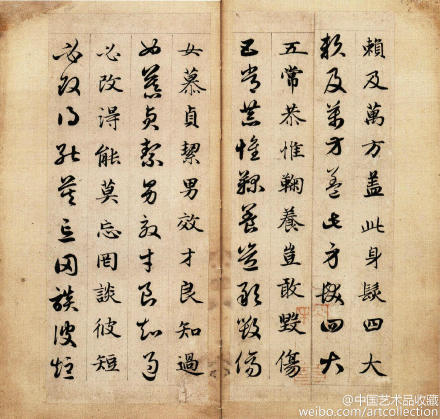 賴及萬方蓋此身髮四大
賴及萬方蓋此身髮四大
五常恭惟鞠養豈敢毀傷
五常恭惟鞠養豈敢毀傷
女慕貞絜男效才良知過
女慕貞絜男效才良知過
必改得能莫忘罔談彼短
必改得能莫忘罔談彼短
@中国艺术品收藏
weibo.com/artcollection